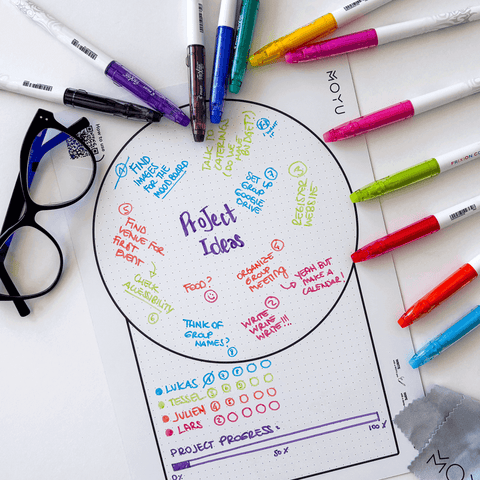 MOYU
How to use
TALK TO
CATERING
(DO WE
HAVE
BUDGET?)
4
FIND
IMAGES
FOR THE
MOODBOARD
SET
UP
GROUP
GOOGLE
DRIVE
7
REGISTER
WEBSITE
PROJECT
IDEAS
5
FIND
VENUE FOR
FIRST
EVENT
CHECK
ACCESSIBILITY
6
FOOD?
ORGANIZE
GROUP
MEETING
YEAH BUT
MAKE A
CALENDAR!
2
WRITE
WRITE
WRITE!!!
THINK OF
GROUP
NAMES?
LUKAS
TESSEL
JULIEN
LARS
PROJECT PROGRESS:
0% 50% 100%
MOYU